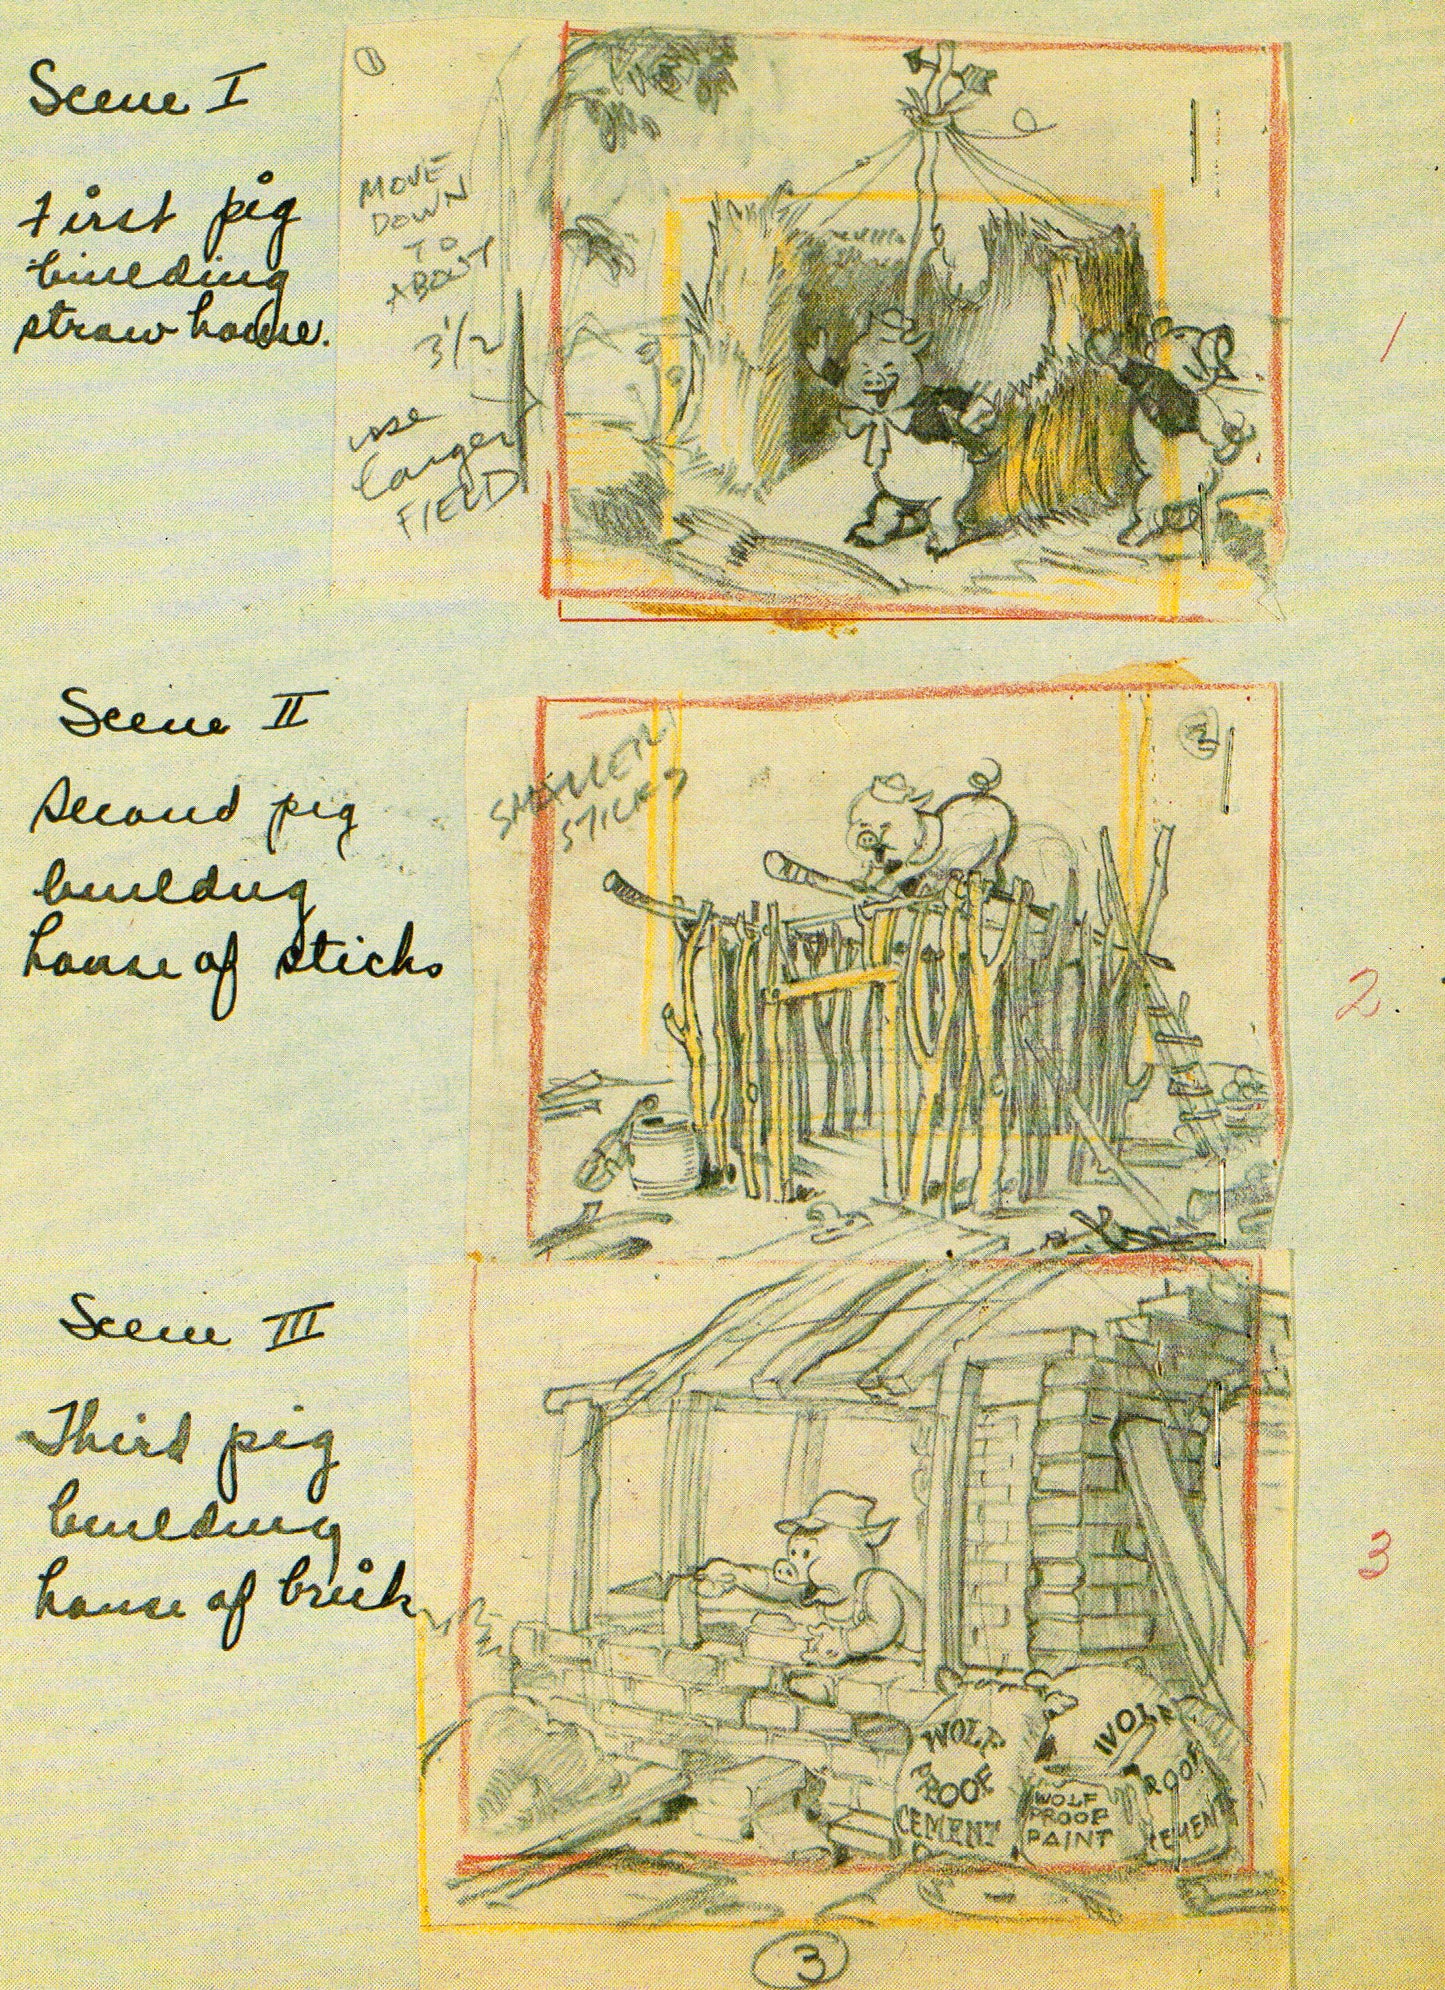 Scene I
First pig
building
straw house.
1
MOVE
DOWN
TO
ABOUT
3 1/2
use
Larger
FIELD
1
Scene II
Second pig
buildng
house of sticks
SMALLER
STICKS
2
2.
Scene III
Third pig
building
house of brick
WOLF
PROOF
CEMENT
WOLF
PROOF
PAINT
WOLF
PROOF
CEMENT
3
3